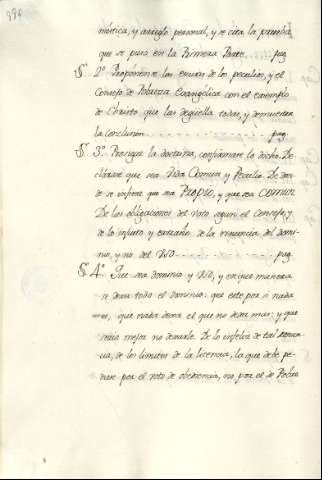 mistica, y arreglo personal, y se cita la prueba
que se puso en la Primera Parte. ..... pag.
§. 2º Proponense los de los peculios, y el
Consejo de Pobreza Evangelica con el exemplo
de Christo que las deguella todas, y demuestra
la conclusion. ........ pag.
§. 3º. la doctrina, confirmase lo dicho. De
clarase que sea Vida Comun y Peculio. De don
de se infiere que sea Propio, y que sea Comun.
De las obligaciones del Voto segun el Consejo, y
de lo injusto y estraño de la renuncia del domi
nio, y no del Uso ........ pag.
§. 4º. Que sea dominio y Uso, y en que manera
se dexa todo el dominio: que este por si nada
es, que nada dexa el que no dexa mas: y que
seria mejor no dexarle. De lo infeliz de tal renun
cia, de los limites de la licencia, la que debe pe
dirse por el voto de obediencia, no por el de Pobre